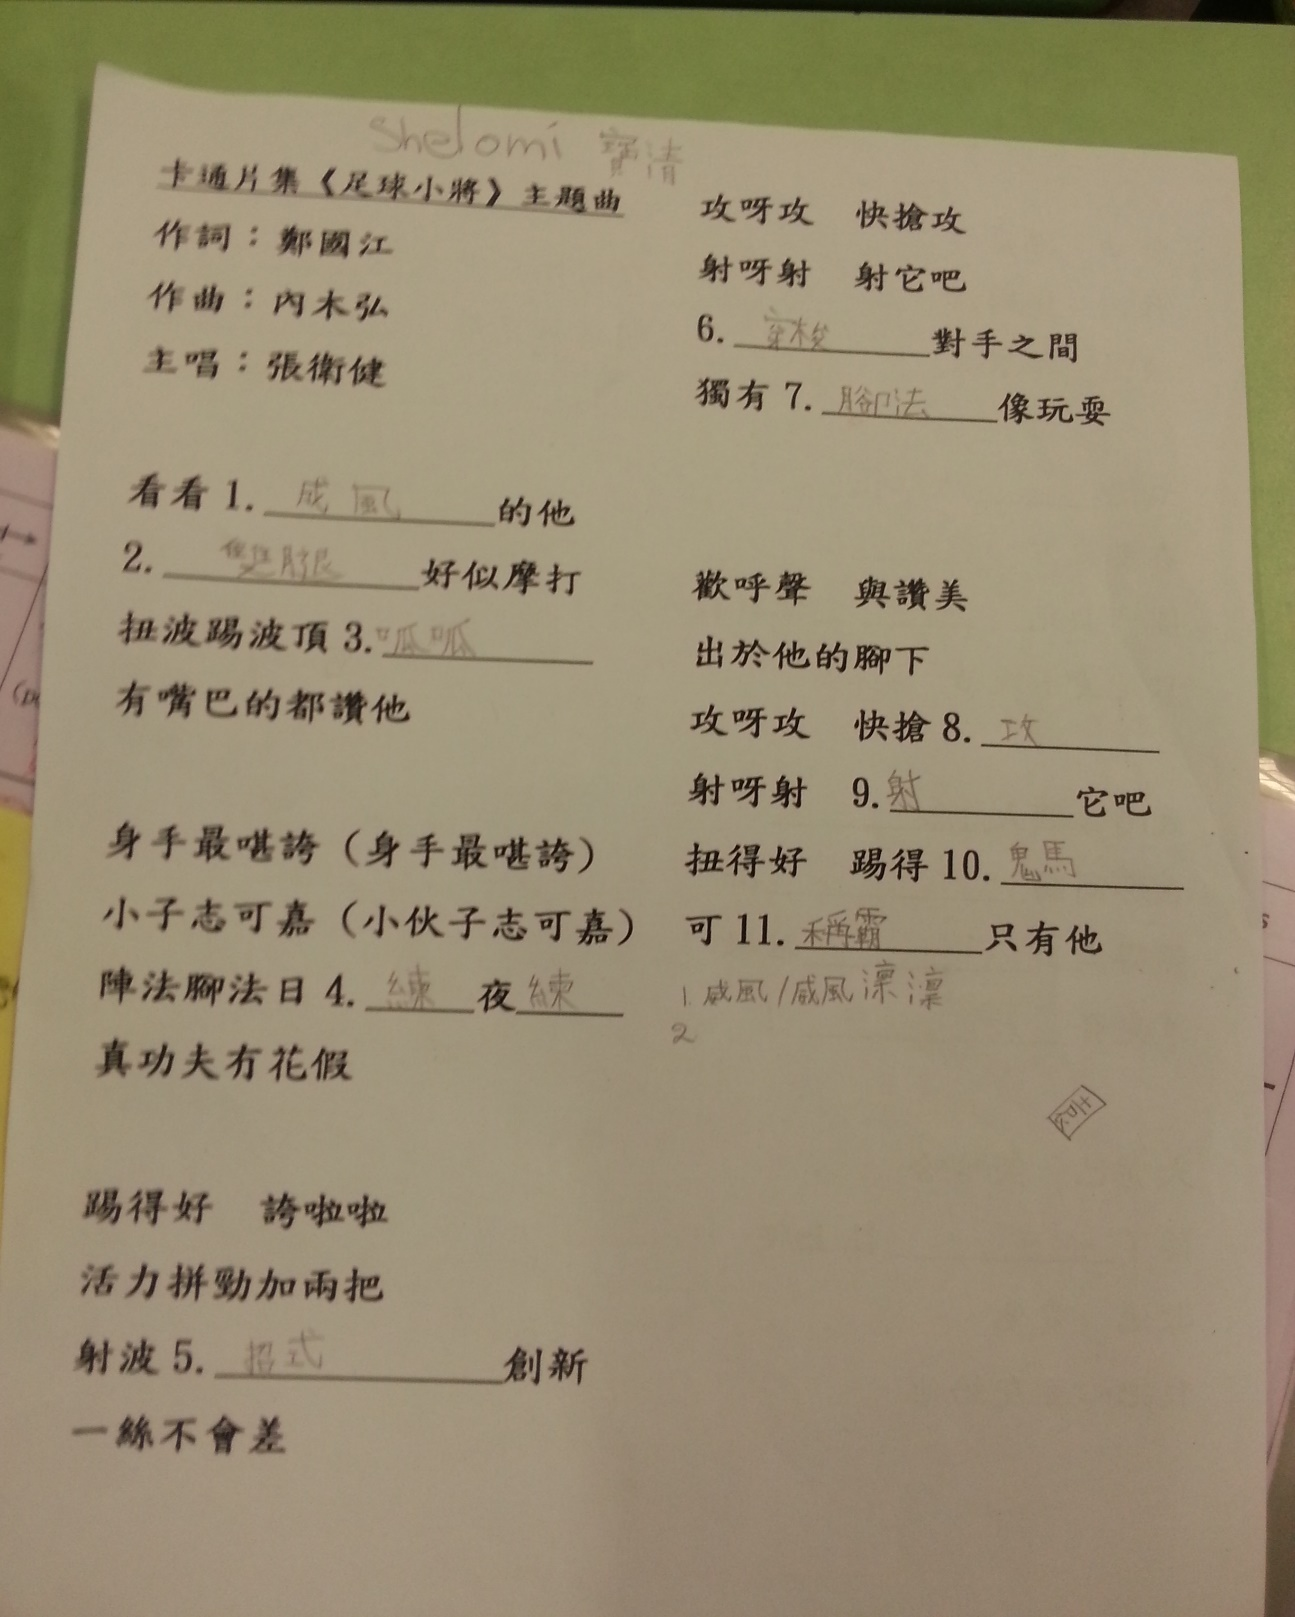 Shelomi 寶清
卡通片集《足球小將》主題曲
作詞：鄭國江
作曲：內木弘
主唱：張衛健
看看 1. 成風 的他
2. 雙腿 好似摩打
扭波踢波頂 3. 呱呱
有嘴巴的都讚他
身手最啱誇（身手最啱誇）
小子志可嘉（小伙子志可嘉）
陣法腳法日 4. 練 夜 練
真功夫冇花假
踢得好 誇啦啦
活力拼勁加兩把
射波 5. 招式 創新
一絲不會差
攻呀攻 快搶攻
射呀射 射它吧
6. 穿梭 對手之間
獨有 7. 腳法 像玩耍
歡呼聲 與讚美
出於他的腳下
攻呀攻 快搶 8. 攻
射呀射 9. 射 它吧
扭得好 踢得 10. 鬼馬
可 11. 稱霸 只有他
1. 威風/威風凛凛
2